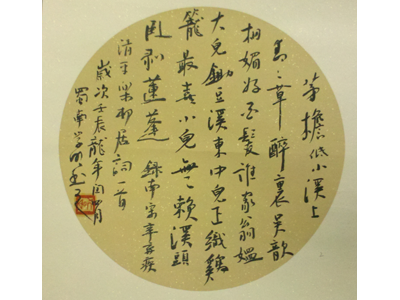 茅檐低小溪上
青々草醉裏吴
相媚好白髮誰家翁媼
大兒鋤豆溪東中兒正織鷄
籠最喜小兒無賴溪頭
卧剥蓮蓬 録南宋辛棄疾
清平樂邨居詞一首
歲次壬辰龍年
蜀南